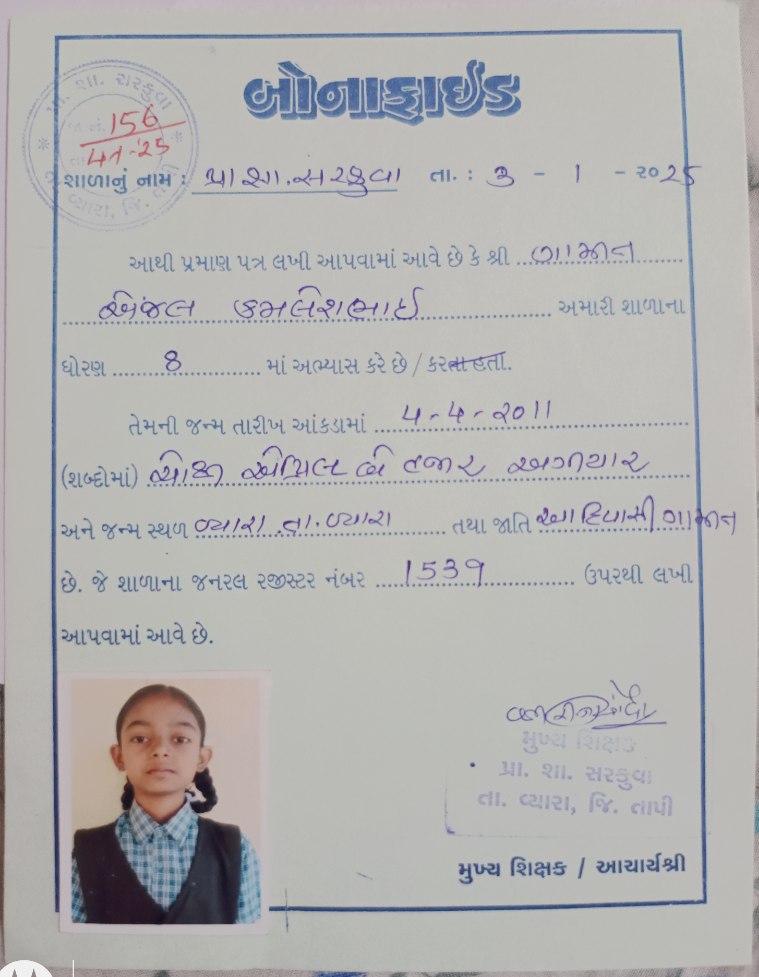 બોનાફાઈડ
પ્રા. શા. સરકુવા
જા.નં. 156
તા. 4-1-25
તા. વ્યારા, જિ. તાપી
શાળાનું નામ : પ્રા શા. સરકુવા તા. : 3 - 1 - ૨૦25
આથી પ્રમાણ પત્ર લખી આપવામાં આવે છે કે શ્રી ગામીત
એંજલ કમલેશભાઈ અમારી શાળાના
ધોરણ 8 માં અભ્યાસ કરે છે / કરતા હતા.
તેમની જન્મ તારીખ આંકડામાં 4-4-2011
(શબ્દોમાં) ચોથી એપ્રિલ બે હજાર અગીયાર
અને જન્મ સ્થળ વ્યારા તા. વ્યારા તથા જાતિ આદિવાસી ગામીત
છે. જે શાળાના જનરલ રજીસ્ટર નંબર 1539 ઉપરથી લખી
આપવામાં આવે છે.
મુખ્ય શિક્ષક
પ્રા. શા. સરકુવા
તા. વ્યારા, જિ. તાપી
મુખ્ય શિક્ષક / આચાર્યશ્રી